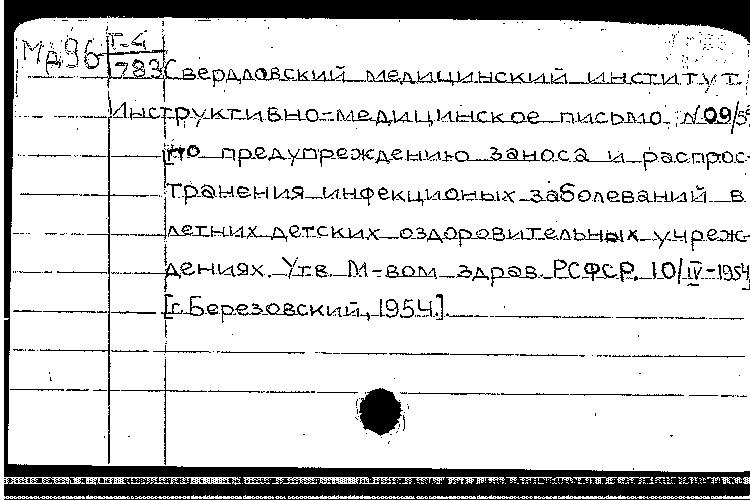 Мд96 Т-4
783
Свердловский медицинский институт.
Инструктивно-медицинское письмо N09/5
по предупреждению заноса и распрос-
транения инфекционых заболеваний в
летних детских оздоровительных учреж-
дениях. Утв. М-вом здрав. РСФСР. 10/IV-1954
[г. Березовский, 1954.].